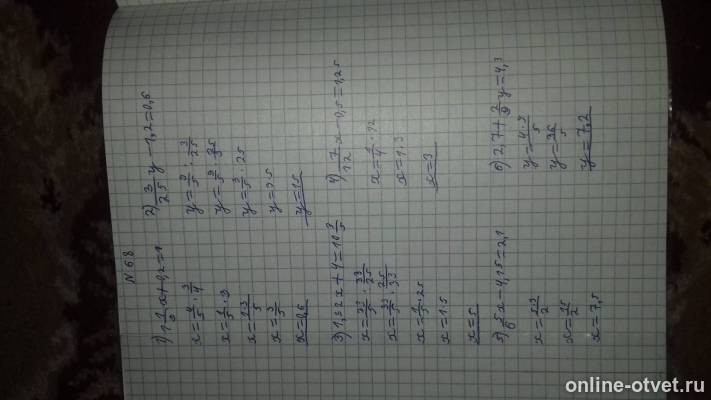 N 68
1) 1 1/3 x + 0,2 = 1
x = 4/5 · 3/4
x = 1/5 · 3
x = 1·3/5
x = 3/5
x = 0,6
2) 3/25 y - 1,2 = 0,6
y = 9/5 : 3/25
y = 9/5 · 25/3
y = 3/5 · 25
y = 3·5
y = 15
3) 1,32x + 4 = 10 3/5
x = 33/5 : 33/25
x = 33/5 · 25/33
x = 1/5 · 25
x = 1·5
x = 5
4) 7/12 x - 0,5 = 1,25
x = 1/4 · 12
x = 1·3
x = 3
5) 5/6 x - 4,15 = 2,1
x = 5·3/2
x = 15/2
x = 7,5
6) 2,7 + 2/9 y = 4,3
y = 4·9/5
y = 36/5
y = 7,2
online-otvet.ru